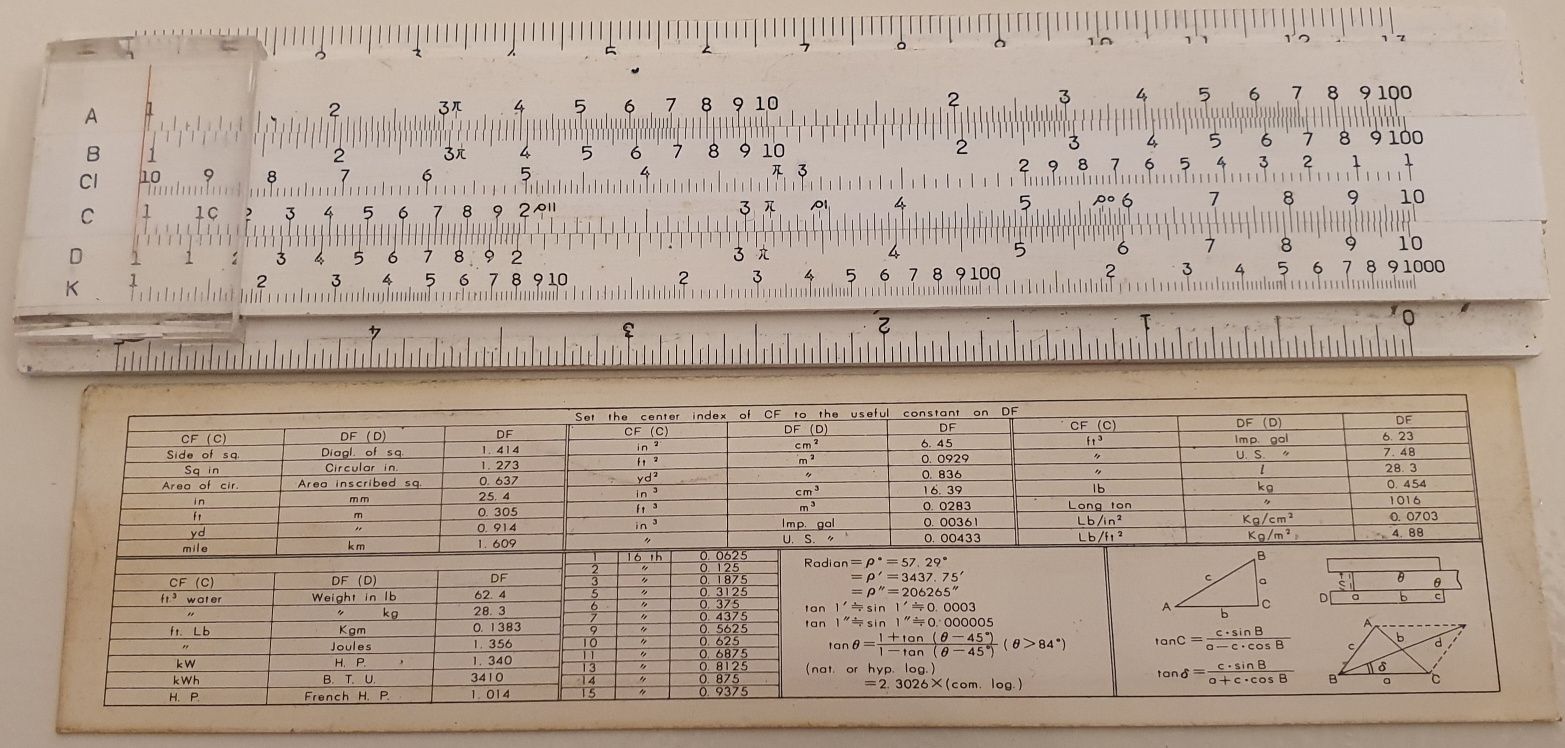 2 3 4 5 6 7 8 9 10 11 12 13
A 1 2 3 π 4 5 6 7 8 9 10 2 3 4 5 6 7 8 9 100
B 1 2 3 π 4 5 6 7 8 9 10 2 3 4 5 6 7 8 9 100
CI 10 9 8 7 6 5 4 π 3 2 9 8 7 6 5 4 3 2 1 1
C 1 2 3 4 5 6 7 8 9 2 ρ'' 3 π ρ' 4 5 ρ° 6 7 8 9 10
D 1 1 2 3 4 5 6 7 8 9 2 3 π 4 5 6 7 8 9 10
K 1 2 3 4 5 6 7 8 9 10 2 3 4 5 6 7 8 9 100 2 3 4 5 6 7 8 9 1000
4 3 2 1 0
Set the center index of CF to the useful constant on DF
CF (C) DF (D) DF CF (C) DF (D) DF CF (C) DF (D) DF
Side of sq. Diagl. of sq. 1. 414 in ² cm² 6. 45 ft³ Imp. gal 6. 23
Sq in Circular in. 1. 273 ft ² m² 0. 0929 〃 U. S. 〃 7. 48
Area of cir. Area inscribed sq. 0. 637 yd² 〃 0. 836 〃 l 28. 3
in mm 25. 4 in ³ cm³ 16. 39 lb kg 0. 454
ft m 0. 305 ft ³ m³ 0. 0283 Long ton 〃 1016
yd 〃 0. 914 in ³ Imp. gal 0. 00361 Lb/in² Kg/cm² 0. 0703
mile km 1. 609 〃 U. S. 〃 0. 00433 Lb/ft² Kg/m² 4. 88
CF (C) DF (D) DF
ft.³ water Weight in lb 62. 4
〃 〃 kg 28. 3
ft. Lb Kgm 0. 1383
〃 Joules 1. 356
kW H. P. 1. 340
kWh B. T. U. 3410
H. P. French H. P. 1. 014
1 16 th 0. 0625
2 〃 0. 125
3 〃 0. 1875
5 〃 0. 3125
6 〃 0. 375
7 〃 0. 4375
9 〃 0. 5625
10 〃 0. 625
11 〃 0. 6875
13 〃 0. 8125
14 〃 0. 875
15 〃 0. 9375
Radian=ρ°=57. 29°
=ρ′=3437. 75′
=ρ″=206265″
tan 1′≒sin 1′≒0. 0003
tan 1″≒sin 1″≒0. 000005
tan θ = 1+tan (θ−45°) / 1−tan (θ−45°) (θ>84°)
(nat. or hyp. log.)
=2. 3026×(com. log.)
A B C a b c
S θ θ
D a b c
tanC = c·sin B / a−c·cos B
tanδ = c·sin B / a+c·cos B
A B C a b c d δ